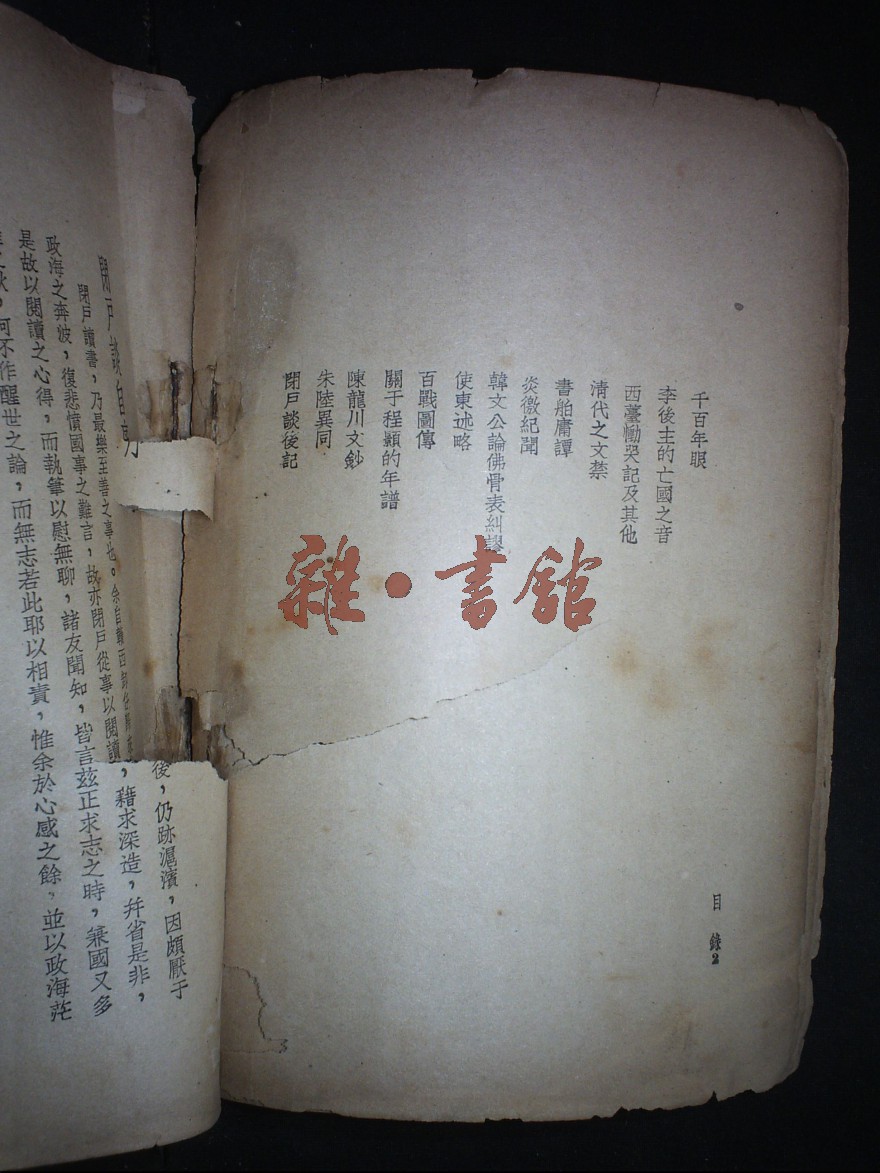 千百年眼
李後主的亡國之音
西臺慟哭記及其他
清代之文禁
書舶庸譚
炎徼紀聞
韓文公論佛骨表糾謬
使東述略
百戰圖傳
關于程顥的年譜
陳龍川文鈔
朱陸異同
閉戶談後記
目錄2
雜·書館
閉戶談自
閉戶讀書，乃最樂至善之事也。余自
後，仍跡滬濱，因頗厭于
政海之奔波，復悲憤國事之難言，故亦閉戶從事以閱讀，藉求深造，并省是非，
是故以閱讀之心得，而執筆以慰無聊，諸友聞知，皆言茲正求志之時，兼國又多
之秋，何不作醒世之論，而無志若此耶以相責，惟余於心感之餘，並以政海茫